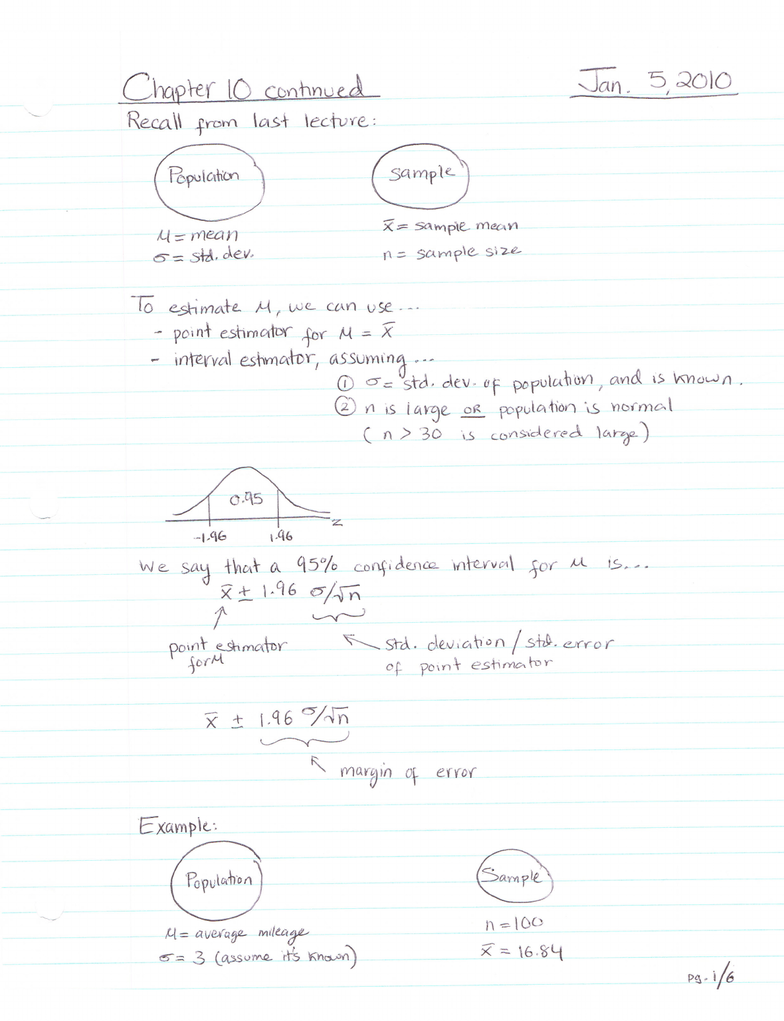 Chapter 10 continued
Jan. 5, 2010
Recall from last lecture:
Population
Sample
μ = mean
x̄ = sample mean
σ = std. dev.
n = sample size
To estimate μ, we can use...
- point estimator for μ = x̄
- interval estimator, assuming...
① σ = std. dev. of population, and is known.
② n is large OR population is normal
(n > 30 is considered large)
0.95
z
-1.96 1.96
We say that a 95% confidence interval for μ is...
x̄ ± 1.96 σ/√n
point estimator
for μ
std. deviation / std. error
of point estimator
x̄ ± 1.96 σ/√n
margin of error
Example:
Population
Sample
μ = average mileage
n = 100
σ = 3 (assume it's known)
x̄ = 16.84
pg. 1/6